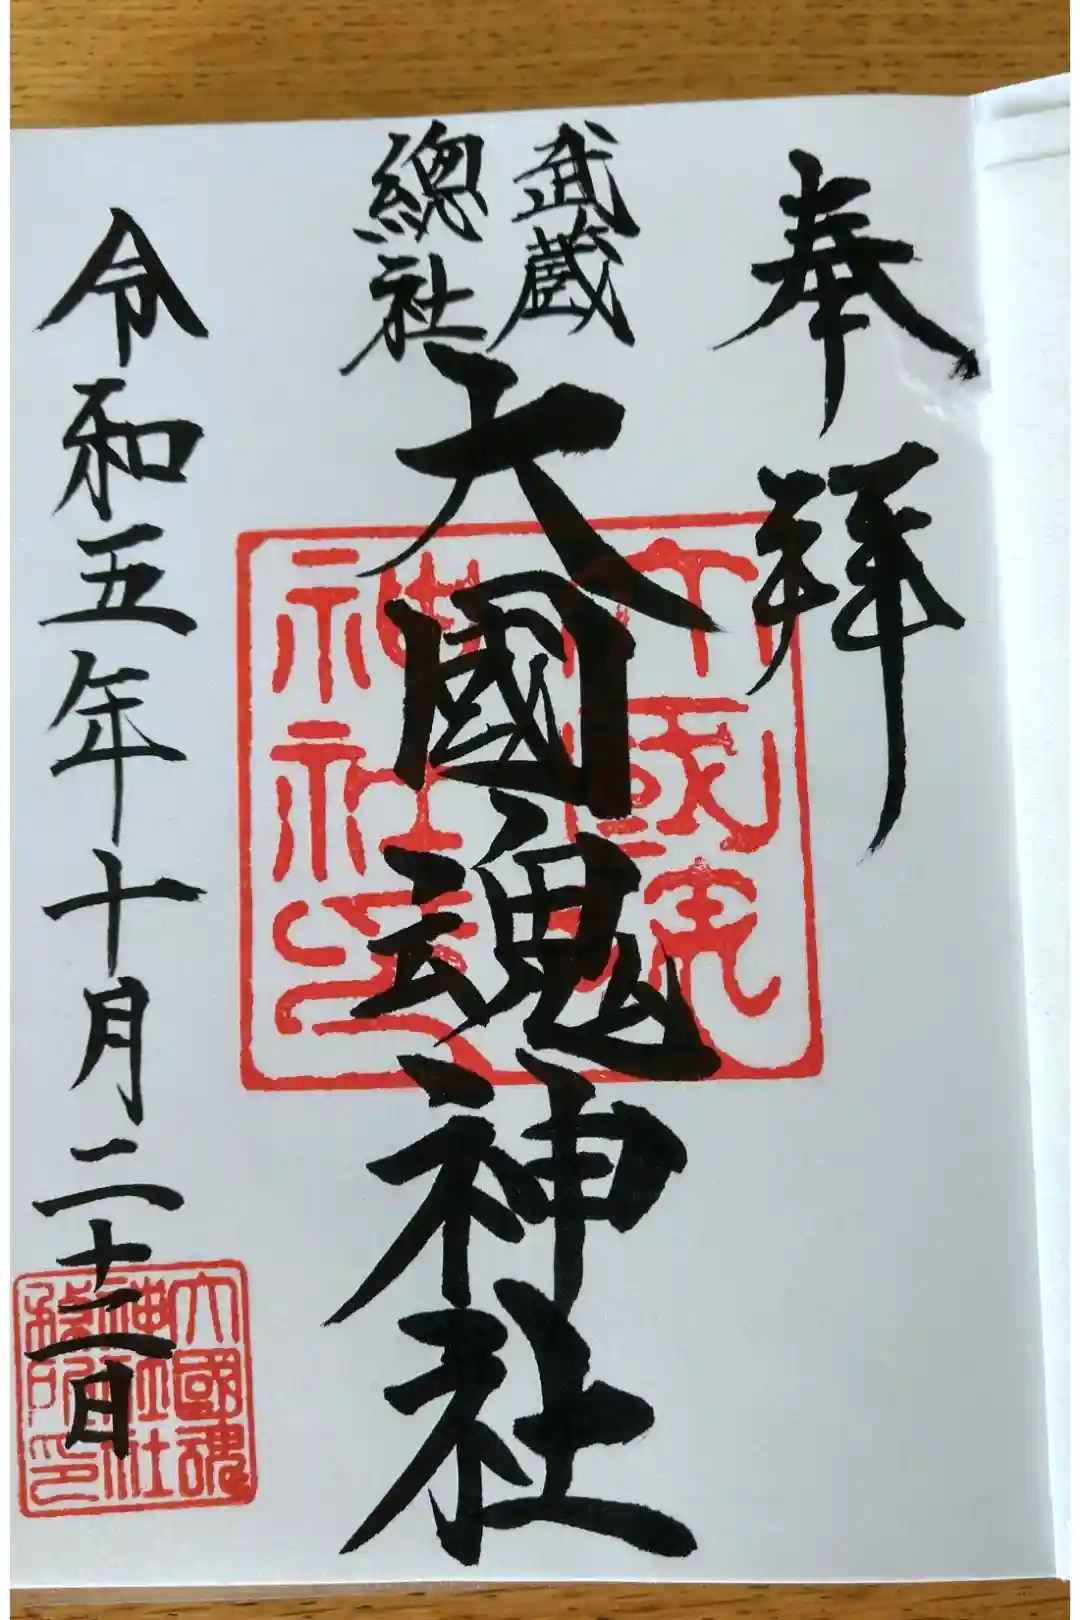 奉拝
武蔵
總社
大國魂神社
令和五年十月二十二日
大國魂
神社印
大國魂
神社社
務所印